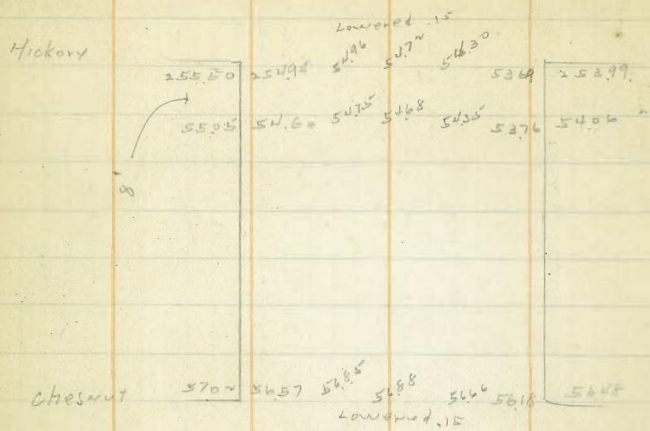 Lowered .15
Hickory
255.50 254.95 54.96 54.72 54.30 53.69 253.99
55.05 54.60 54.75 54.68 54.35 53.76 54.06
8'
Chesnut 57.02 56.57 56.85 56.88 56.66 56.18 56.48
Lowered .15